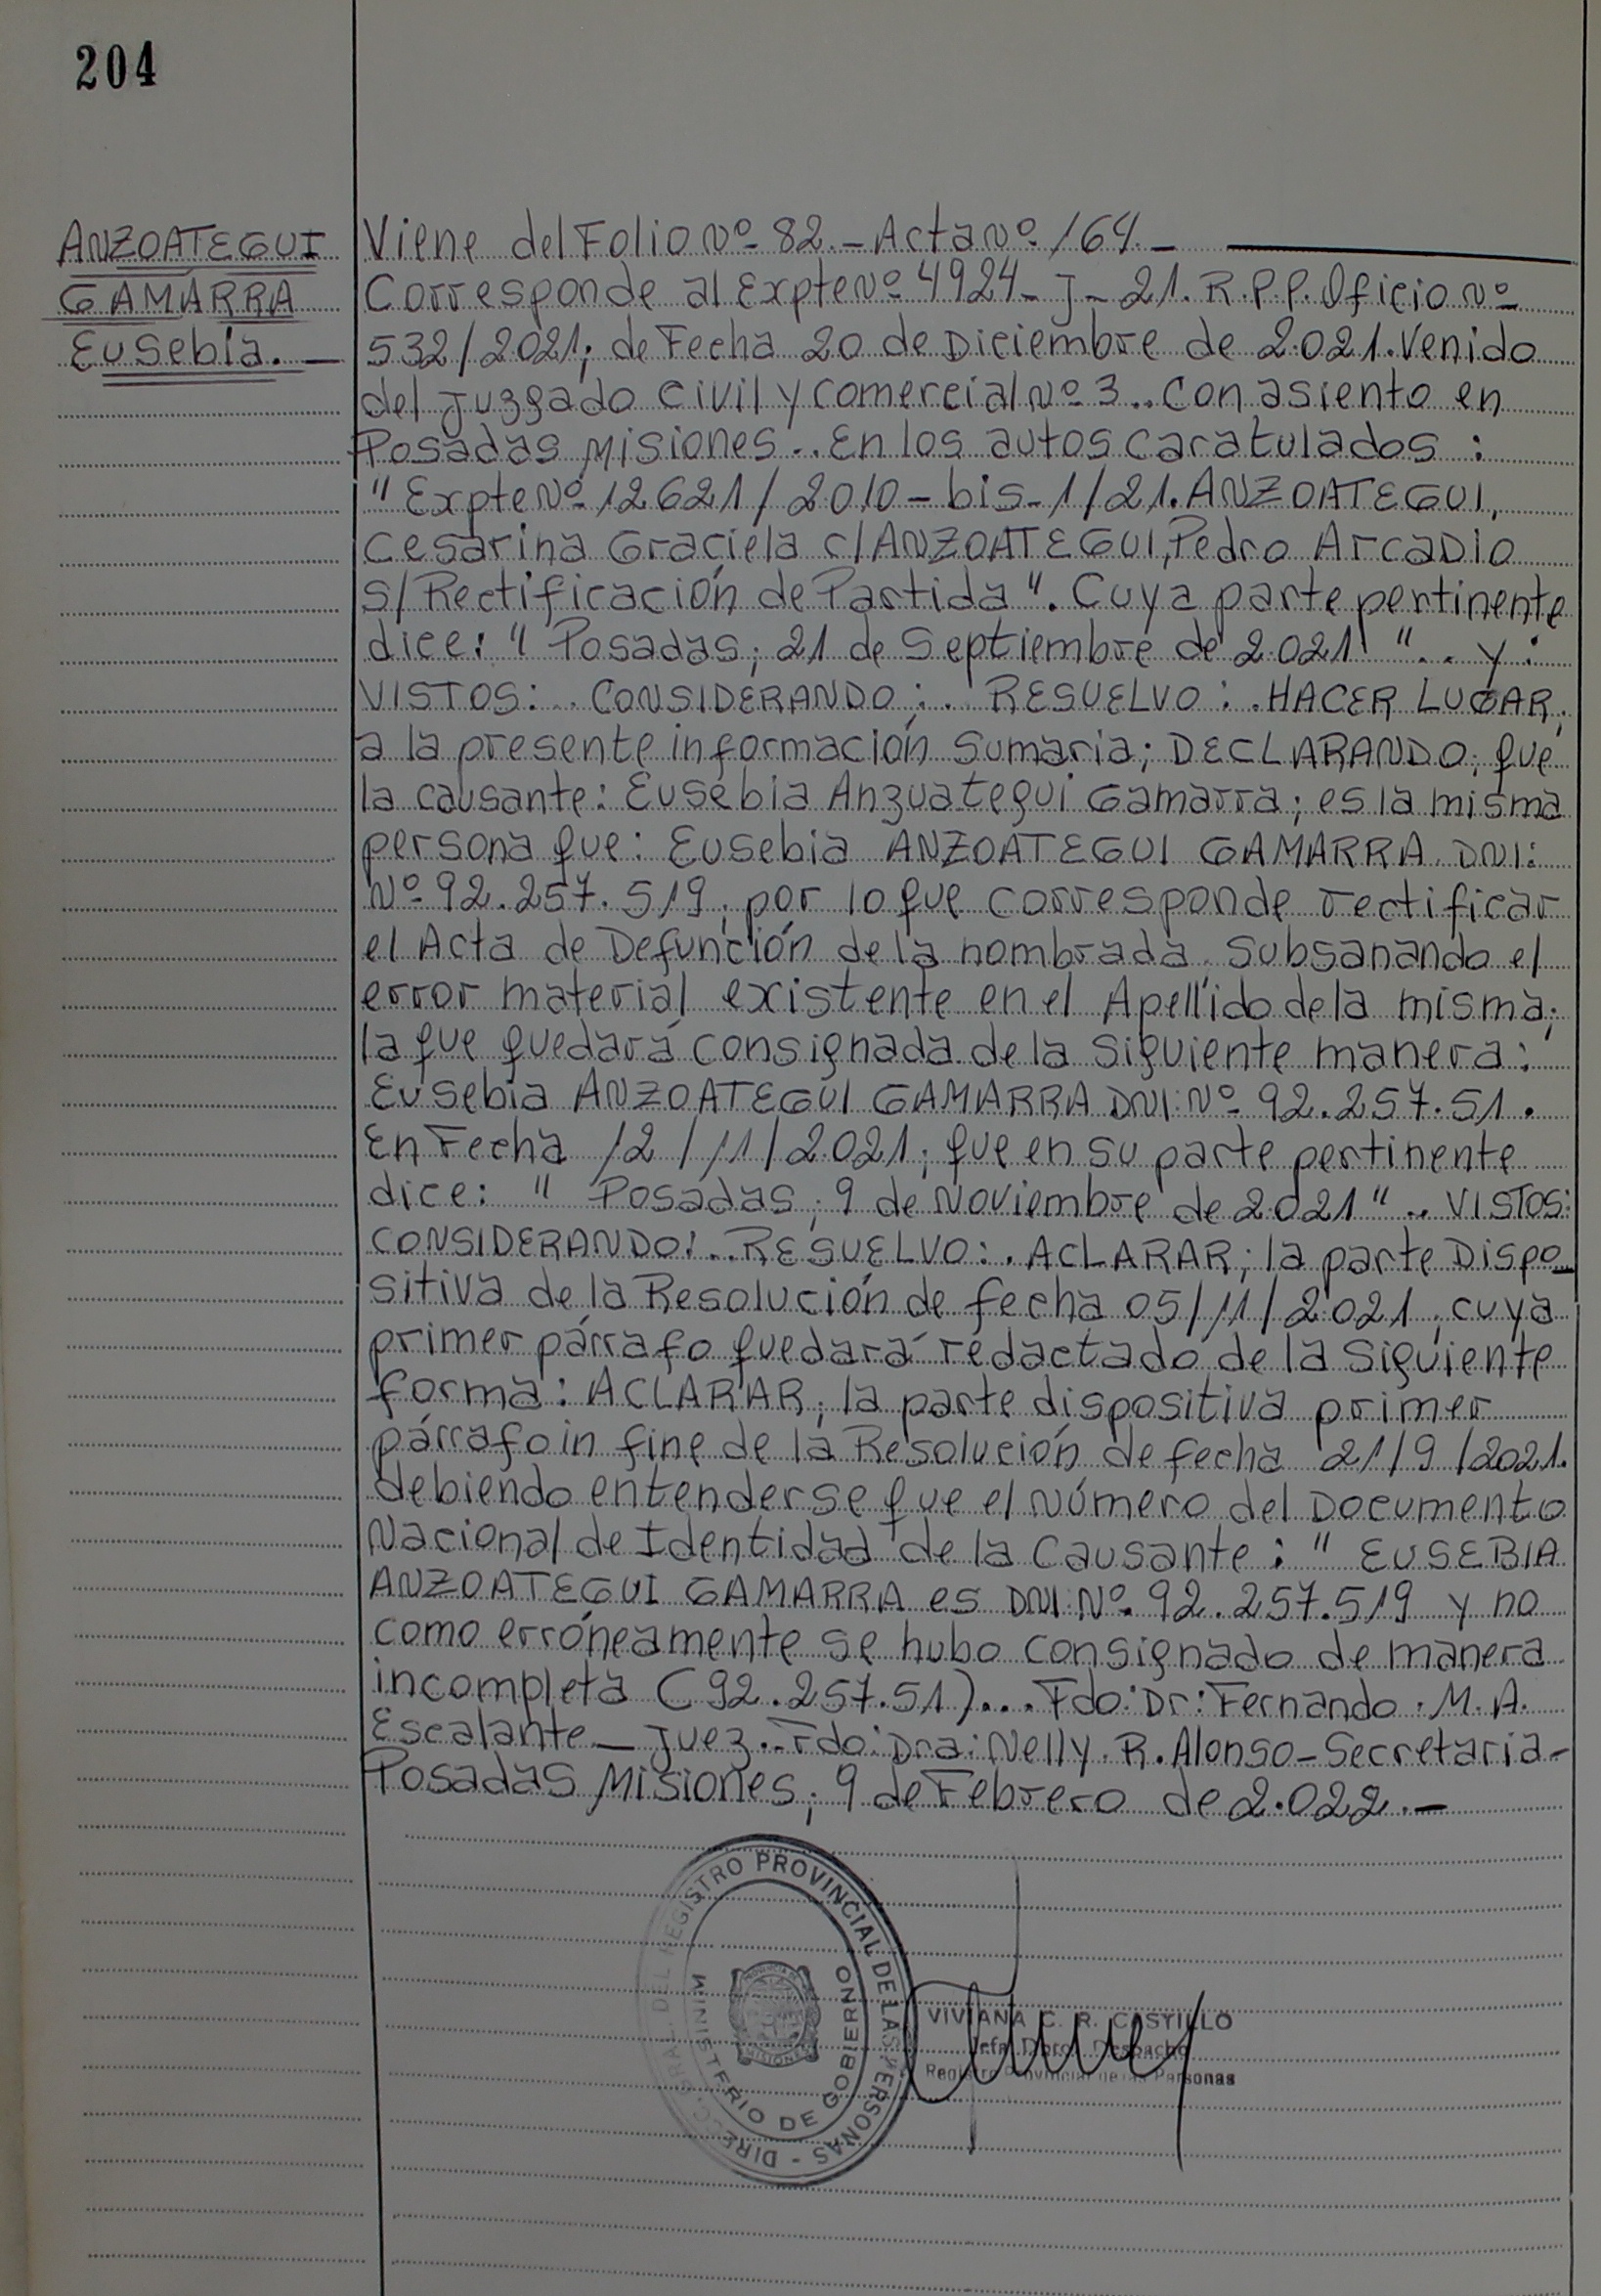 204
ANZOATEGUI
GAMARRA
Eusebia. —
Viene del Folio Nº 82. - Acta Nº 164. -
Corresponde al Expte Nº 4924 - J - 21. R.P.P. Oficio Nº
532/2.021; de Fecha 20 de Diciembre de 2.021. Venido
del Juzgado Civil y Comercial Nº 3.. Con asiento en
Posadas Misiones... En los autos caratulados :
" Expte Nº 12621/2.010 - bis - 1/21. ANZOATEGUI,
Cesarina Graciela c/ ANZOATEGUI, Pedro Arcadio
S/ Rectificación de Partida ". Cuya parte pertinente
dice: " Posadas; 21 de Septiembre de 2.021 " .. y :
VISTOS: .. CONSIDERANDO; .. RESUELVO: . HACER LUGAR,
a la presente información Sumaria; DECLARANDO; que
la causante: Eusebia Anzuategui Gamarra; es la misma
persona que: Eusebia ANZOATEGUI GAMARRA. DNI:
Nº 92.257.519, por lo que corresponde rectificar
el Acta de Defunción de la nombrada. Subsanando el
error material existente en el Apellido de la misma;
la que quedará consignada de la siguiente manera:
Eusebia ANZOATEGUI GAMARRA DNI: Nº 92.257.51.
En Fecha 12/11/2.021; que en su parte pertinente
dice: " Posadas; 9 de Noviembre de 2.021" .. VISTOS:
CONSIDERANDO: .. RESUELVO: . ACLARAR; la parte Dispo
sitiva de la Resolución de fecha 05/11/2.021, cuya
primer párrafo quedará redactado de la siguiente
forma: ACLARAR; la parte dispositiva primer
párrafo in fine de la Resolución de fecha 21/9/2021.
debiendo entenderse que el Número del Documento
Nacional de Identidad de la Causante: " EUSEBIA
ANZOATEGUI GAMARRA es DNI: Nº 92.257.519 y no
como erróneamente se hubo consignado de manera
incompleta (92.257.51)... Fdo: Dr: Fernando. M. A.
Escalante — Juez. - Fdo: Dra: Nelly. R. Alonso - Secretaria -
Posadas Misiones; 9 de Febrero de 2.022. -
DIRECC. GRAL. DEL REGISTRO PROVINCIAL DE LAS PERSONAS -
MINISTERIO DE GOBIERNO
PROVINCIA DE
MISIONES
VIVIANA C. R. CASTILLO
Jefa Dpto. Despacho
Registro Provincial de las Personas